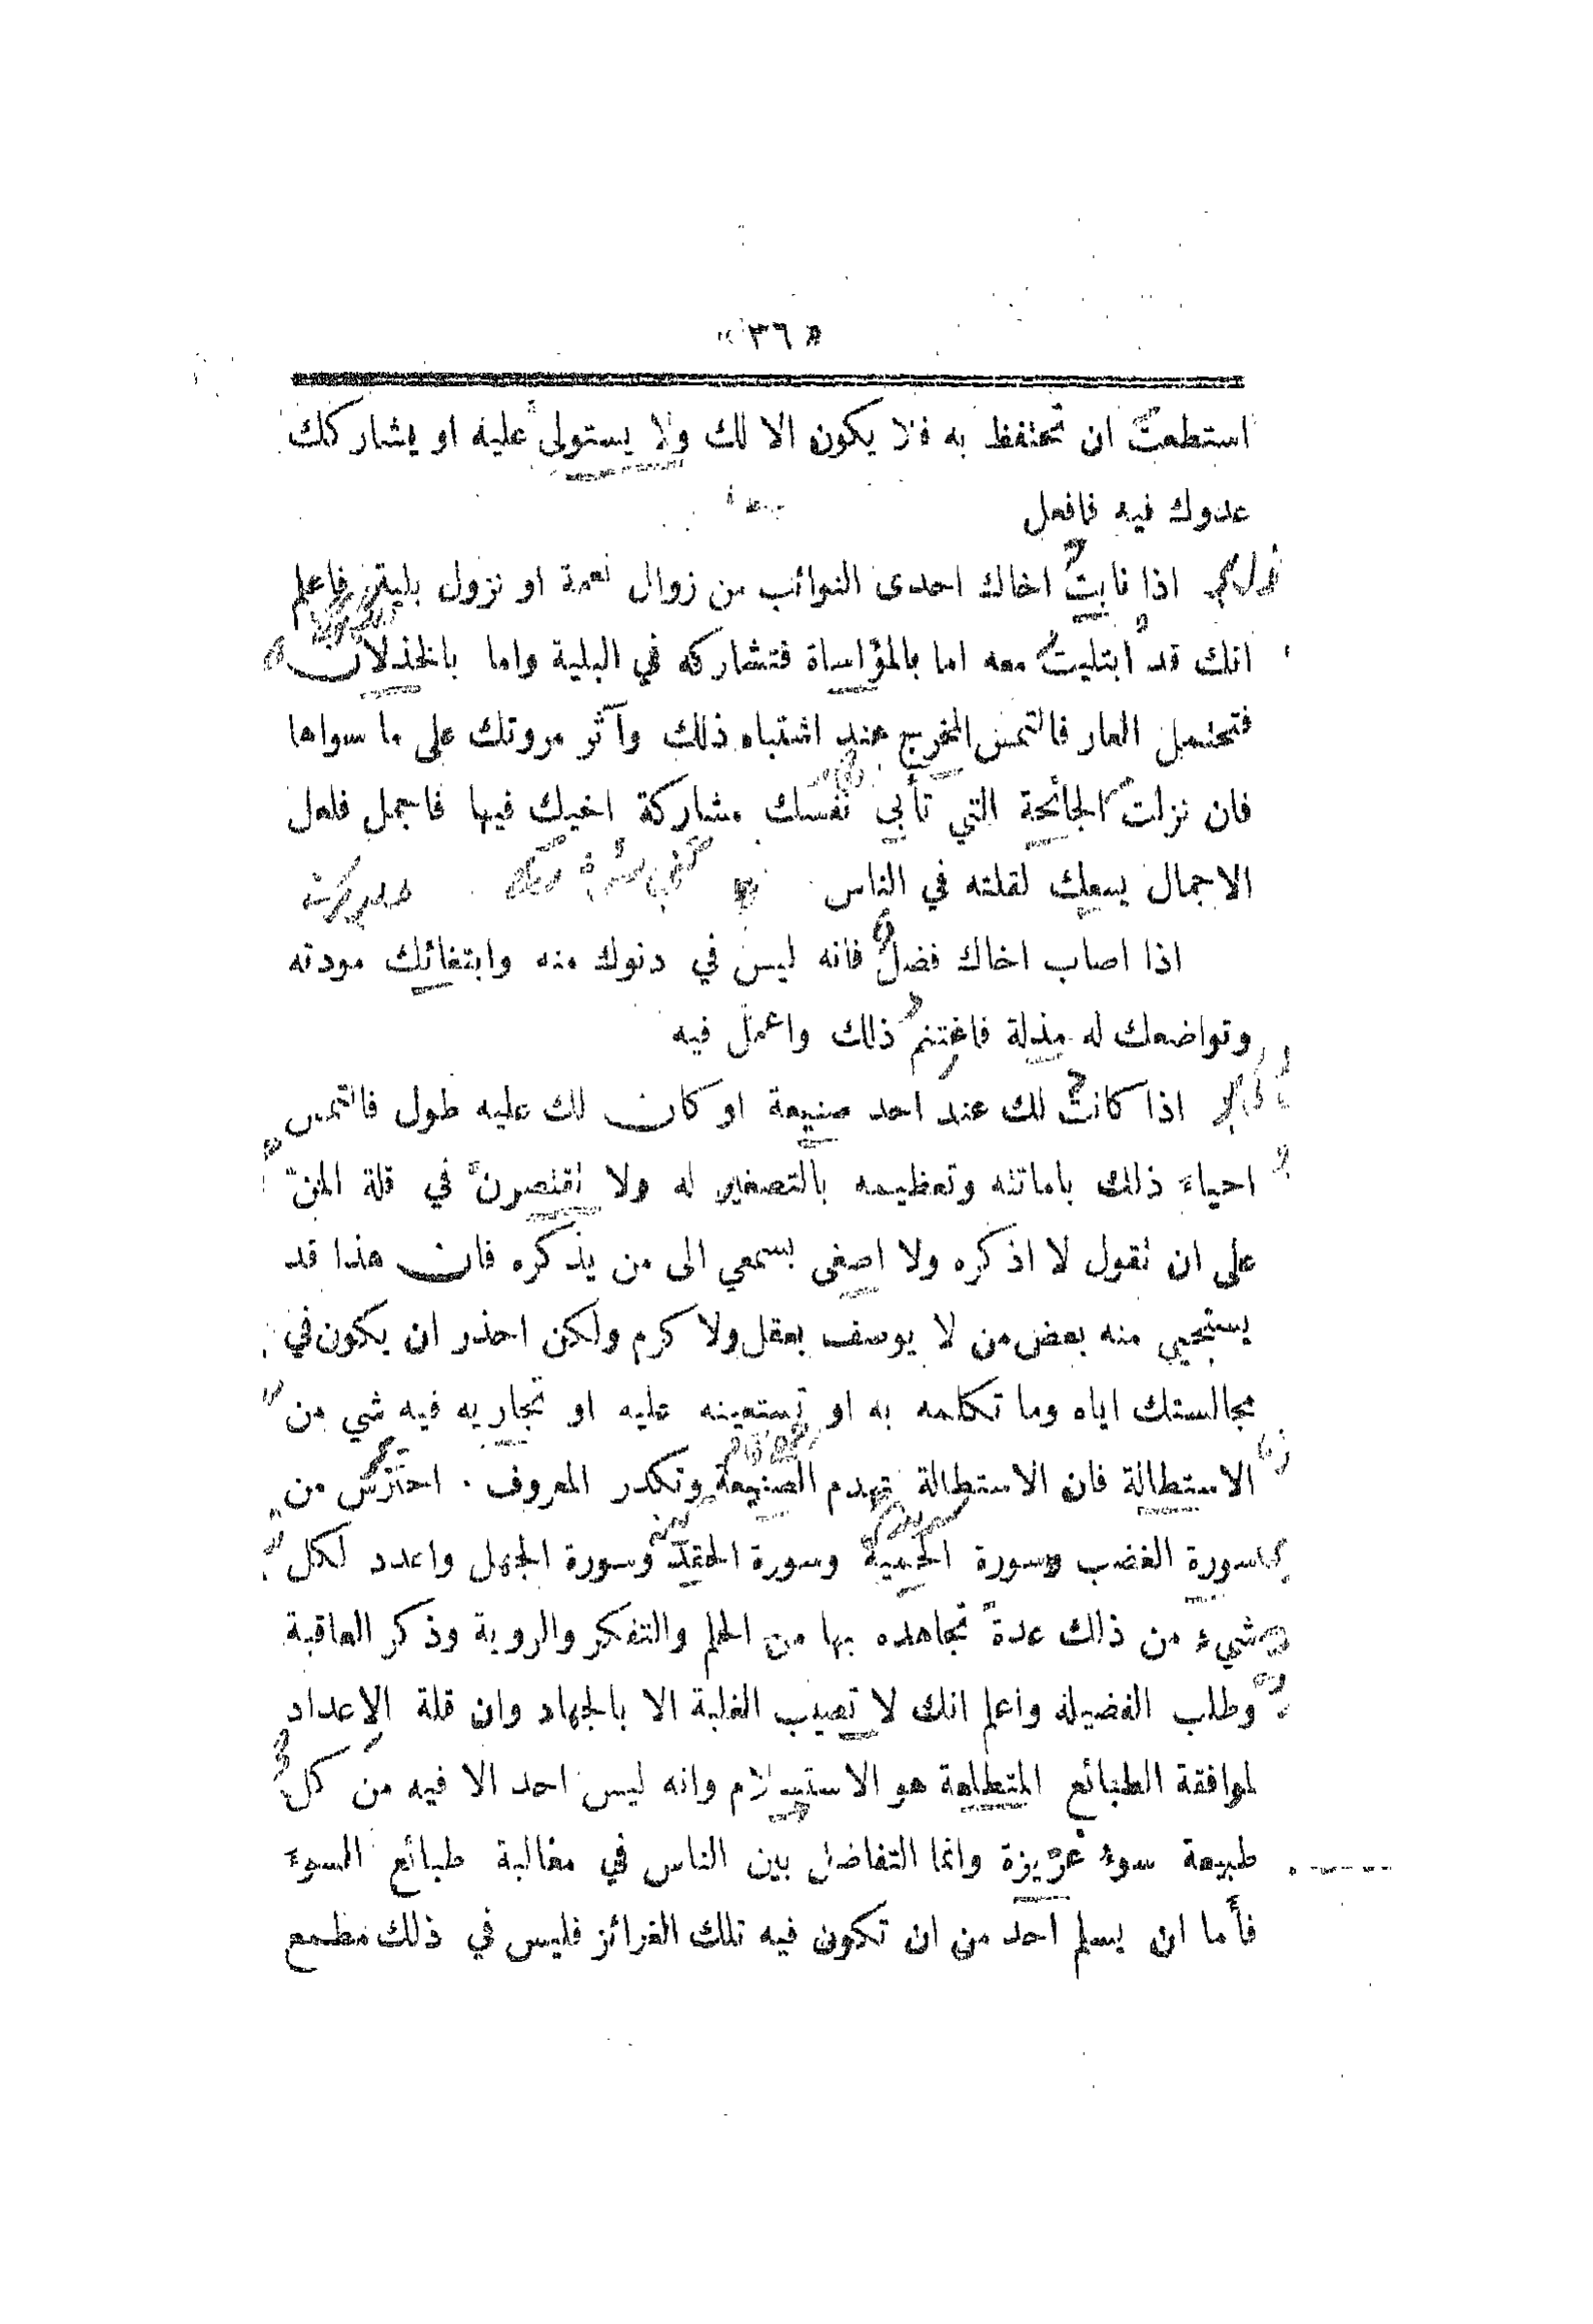 « ٣٦ »
استطعت ان تحتفظ به فلا يكون الا لك ولا يستولى عليه او يشاركك
عدوك فيه فافعل
اذا نابت اخاك احدى النوائب من زوال نعمة او نزول بلية فاعلم
انك قد ابتليت معه اما بالمؤاساة فتشاركه في البلية واما بالخذلان
فتحتمل العار فالتمس المخرج عند اشتباه ذلك وآثر مروتك على ما سواها
فان نزلت الجائحة التي تأبى نفسك مشاركة اخيك فيها فاجمل فلعل
الاجمال يسعك لقلته في الناس
اذا اصاب اخاك فضل فانه ليس في دنوك منه وابتغائك مودته
وتواضعك له مذلة فاغتنم ذلك واعمل فيه
اذا كانت لك عند احد صنيعة او كان لك عليه طول فالتمس
احياء ذلك باماتته وتعظيمه بالتصغير له ولا تقتصرن في قلة المن
على ان تقول لا اذكره ولا اصغى بسمعي الى من يذكره فان هذا قد
يستحيي منه بعض من لا يوسف بعقل ولا كرم ولكن احذر ان يكون في
مجالستك اياه وما تكلمه به او تستعينه عليه او تجاريه فيه شي من
الاستطالة فان الاستطالة تهدم الصنيعة وتكدر المعروف . احترس من
سورة الغضب وسورة الحمية وسورة الحقد وسورة الجهل واعدد لكل
شيء من ذلك عدة تجاهده بها من الحلم والتفكر والروية وذكر العاقبة
وطلب الفضيلة واعلم انك لا تصيب الغلبة الا بالجهاد وان قلة الاعداد
لموافقة الطبائع المتطلعة هو الاستسلام وانه ليس احد الا فيه من كل
طبيعة سوء غريزة وانما التفاضل بين الناس في مغالبة طبائع السوء
فأما ان يسلم احد من ان تكون فيه تلك الغرائز فليس في ذلك مطمع